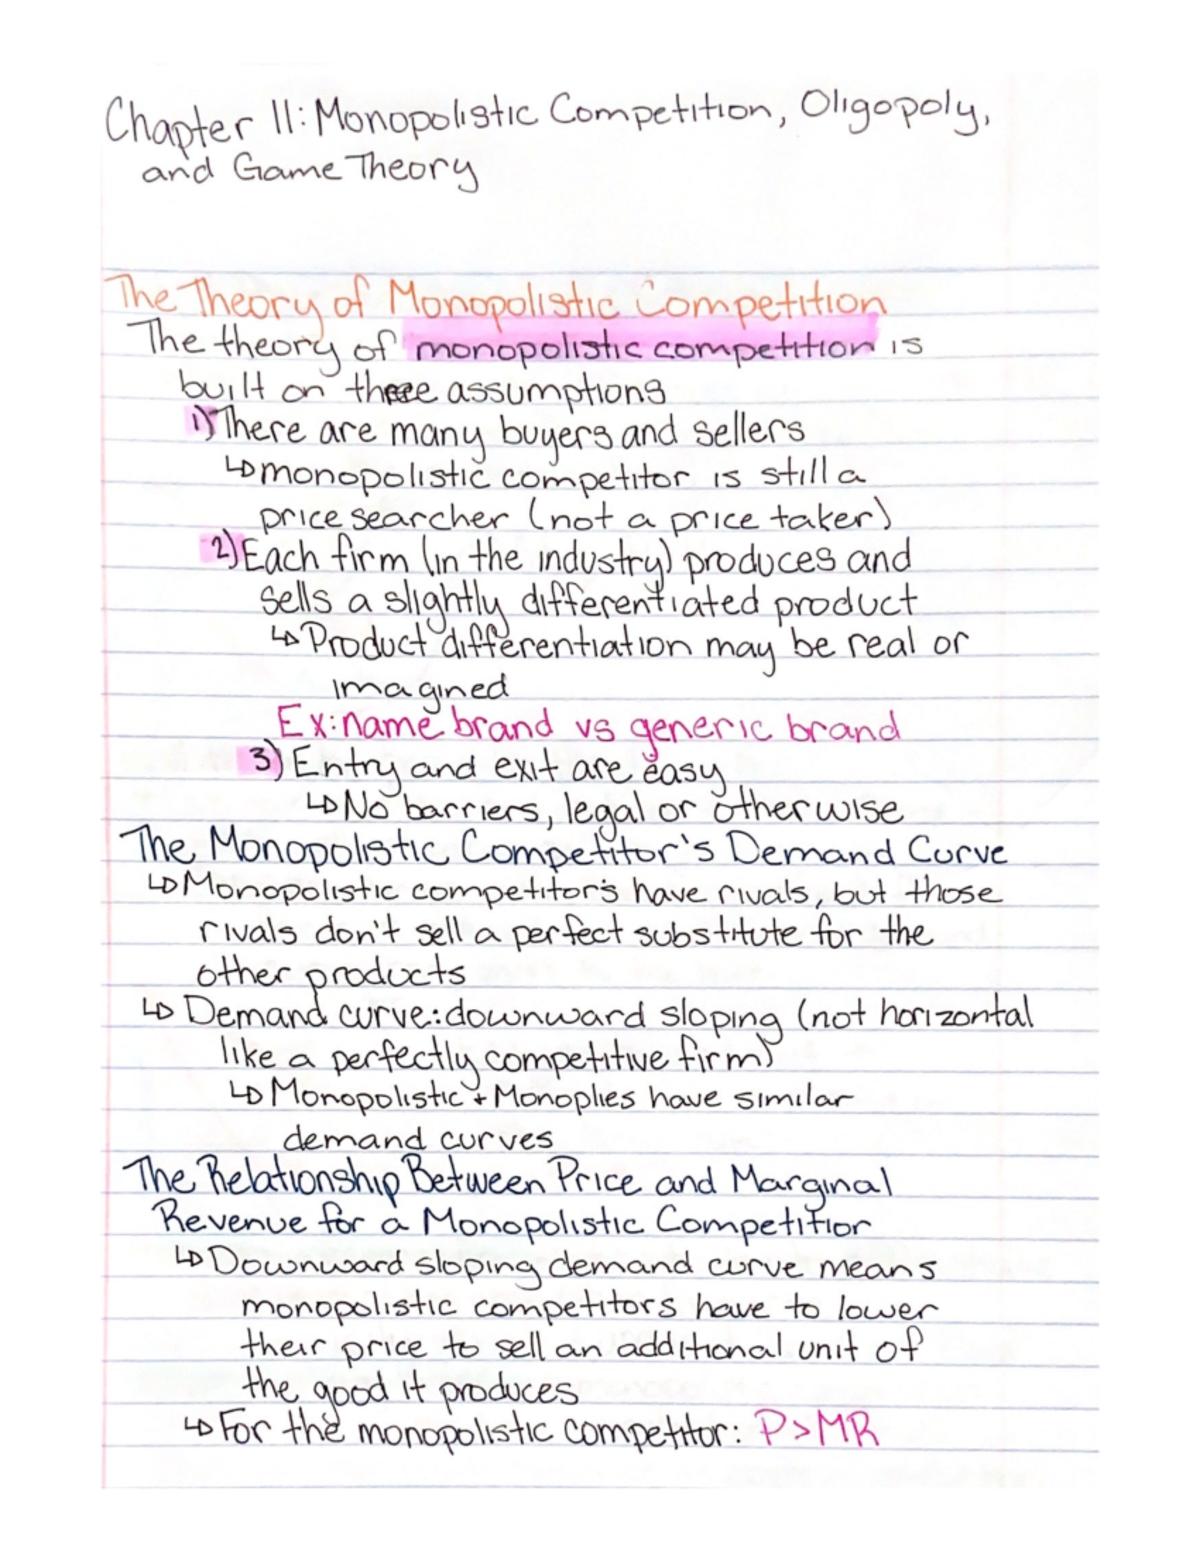 Chapter 11: Monopolistic Competition, Oligopoly,
and Game Theory
The Theory of Monopolistic Competition
The theory of monopolistic competition is
built on these assumptions
1) There are many buyers and sellers
↳ monopolistic competitor is still a
price searcher (not a price taker)
2) Each firm (in the industry) produces and
sells a slightly differentiated product
↳ Product differentiation may be real or
imagined
Ex: name brand vs generic brand
3) Entry and exit are easy
↳ No barriers, legal or otherwise
The Monopolistic Competitor's Demand Curve
↳ Monopolistic competitor's have rivals, but those
rivals don't sell a perfect substitute for the
other products
↳ Demand curve: downward sloping (not horizontal
like a perfectly competitive firm)
↳ Monopolistic + Monoplies have similar
demand curves
The Relationship Between Price and Marginal
Revenue for a Monopolistic Competitior
↳ Downward sloping demand curve means
monopolistic competitors have to lower
their price to sell an additional unit of
the good it produces
↳ For the monopolistic competitor: P>MR